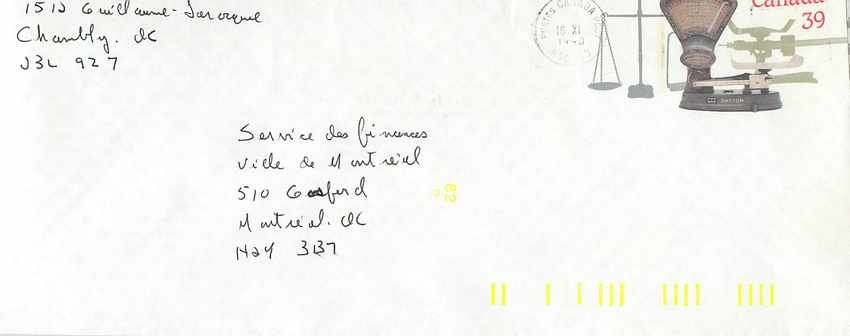 1512 Guillaume-Larocque
Chambly. QC
J3L 9Z7
POSTES CANADA POST
16 XI
Canada
39
DAYTON
Service des finances
Ville de Montréal
510 Gosford
Montréal. QC
H2Y 3B7
82